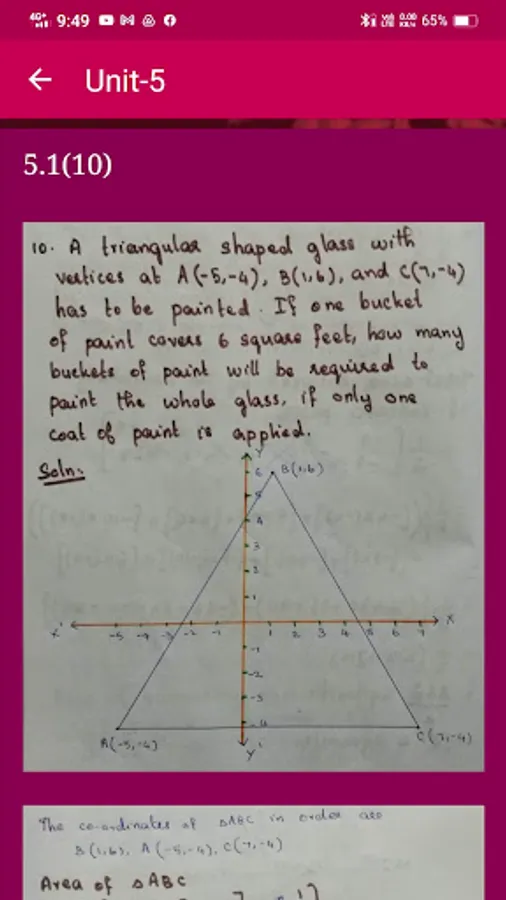 4G+ 9:49 65%
Unit-5
5.1(10)
10. A triangular shaped glass with
vertices at A(-5,-4), B(1,6), and C(7,-4)
has to be painted. If one bucket
of paint covers 6 square feet, how many
buckets of paint will be required to
paint the whole glass, if only one
coat of paint is applied.
Soln:
Y
6 B(1,6)
5
4
3
2
1
X' -5 -4 -3 -2 -1 1 2 3 4 5 6 7 X
-1
-2
-3
-4
A(-5,-4) C(7,-4)
Y'
The co-ordinates of ΔABC in order are
B(1,6), A(-5,-4), C(7,-4)
Area of ΔABC